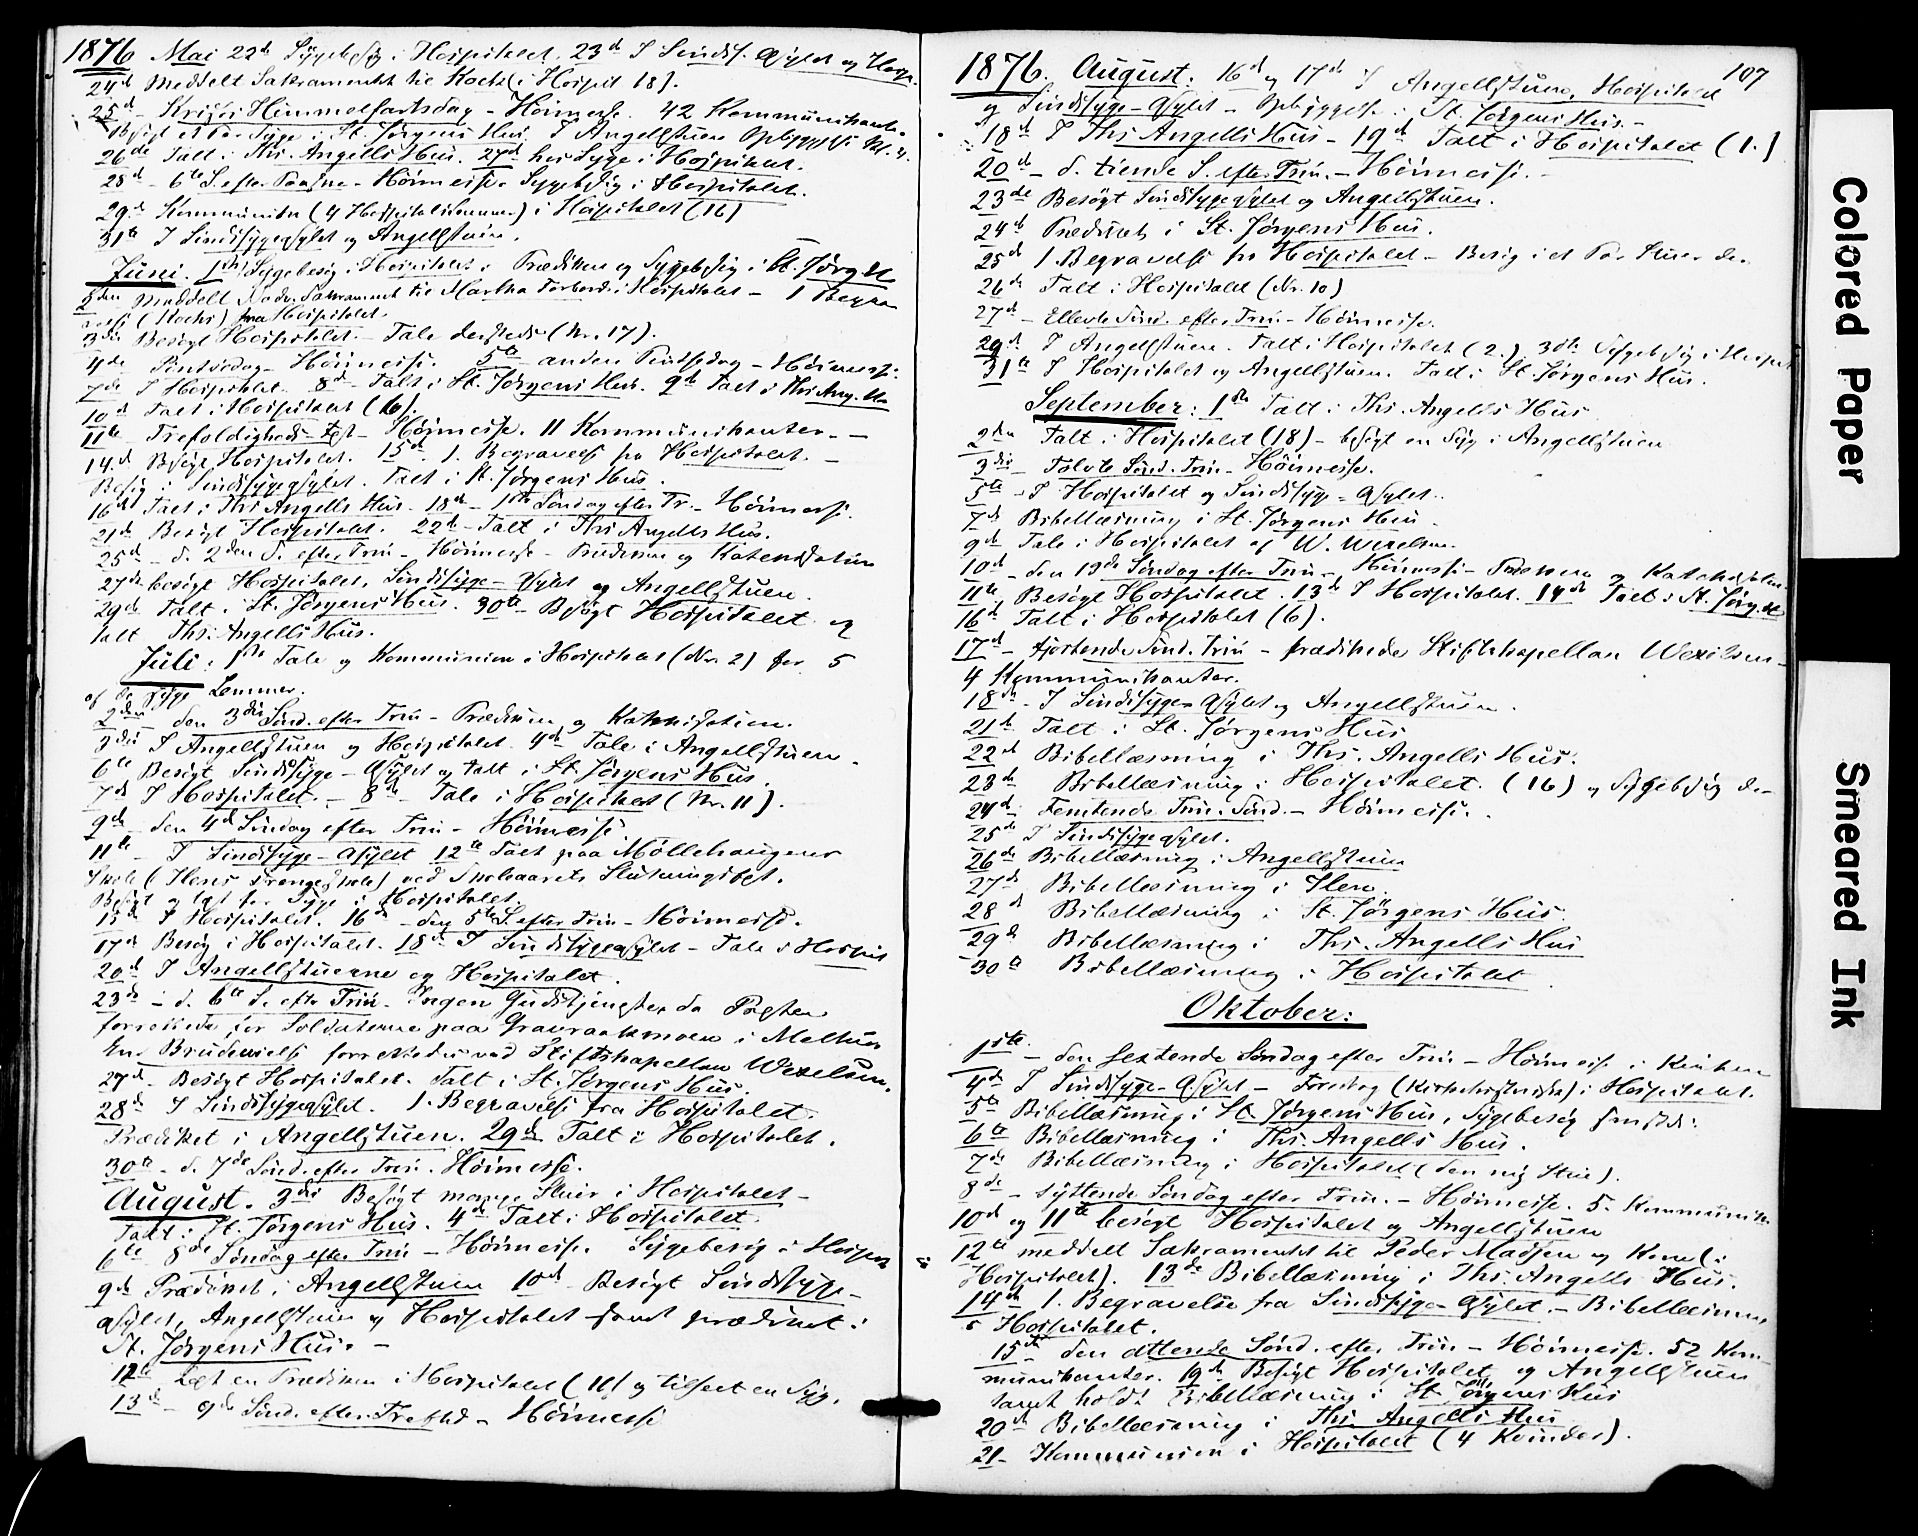 1876 Mai 22de Sygebesøg i Hospitalet. 23de I Sindss. Asylet og Hosp.
24de Meddelt Sakramentet til Kochs (i Hospit 18).
25de Kristi Himmelfartsdag - Høimesse. 42 Kommunikanter
Besøgt et Par Syge i St. Jørgens Hus. I Angellstuen Opbyggelse Kl. 4.
26de Talt i Ths. Angells Hus. 27de hos Syge i Hospitalet.
28de - 6te S. efter Paaske - Høimesse. Sygebesøg i Hospitalet.
29de Kommunion (4 Hospitalslemmer) i Hospitalet (16)
31te I Sindssygeasylet og Angellstuen.
Juni. 1ste Sygebesøg i Hospitalet. Prædiken og Sygebesøg i St. Jørg. H
2den Meddelt Nadv. Sakrament til Martha i Hospitalet - 1 Begra
velse (Kochs) fra Hospitalet.
3die Besøgt Hospitalet - Tale dersteds (Nr. 17).
4de Pintsedag - Høimesse. 5te anden Pintsedag - Høimesse.
7de I Hospitalet. 8de Talt i St. Jørgens Hus. 9de Talt i Ths. Ang. Hu
10de Talt i Hospitalet (6).
11te Trefoldigheds Fest - Høimesse. 11 Kommunikanter. -
14de Besøgt Hospitalet. 15de 1. Begravelse fra Hospitalet. -
Besøg i Sindssygeasylet. Talt i St. Jørgens Hus.
16de Talt i Ths Angells Hus. 18de - 1ste Søndag efter Tr. - Høimesse.
21de Besøgt Hospitalet. 22de Talt i Ths Angells Hus.
25de - d. 2den S. efter Trin - Høimesse - Prædiken og Katekisation
27de besøgt Hospitalet, Sindssyge-Asylet og Angellstuen.
29de Talt i St. Jørgens Hus. 30te Besøgt Hospitalet og
talt Ths. Angells Hus.
Juli: 1ste Tale og Kommunion i Hospitalet (Nr. 2) for 5
af de syge Lemmer.
2den den 3die Sønd. efter Trin - Prædiken og Katekisation.
3die I Angellstuen og Hospitalet. 4de Tale i Angellstuen.
6te Besøgt Sindssyge-Asylet og talt i St. Jørgens Hus.
7de I Hospitalet. - 8de Tale i Hospitalet (Nr. 11).
9de den 4de Søndag efter Trin - Høimesse.
11te - I Sindssyge-Asylet 12te Talt paa Møllehaugens
Skole (Ilens Drengeskole) ved Skoleaarets Slutningsfest.
Besøgt og læst for Syge i Hospitalet.
15de I Hospitalet. 16de - den 5te S. efter Trin - Høimesse.
17de Besøg i Hospitalet. 18de I Sindssygeasylet - Tale i Hospit
20de I Angellstuerne og Hospitalet.
23de - d. 6te S. efter Trin - Ingen Gudstjeneste, da Præsten
forrettede for Soldaterne paa Gravraakmoen i Melhus
En Brudevielse forrettedes ved Stiftskapellan Wexelsen.
27de - Besøgt Hospitalet. Talt i St. Jørgens Hus.
28de I Sindssygeasylet. 1. Begravelse fra Hospitalet.
Prædiket i Angellstuen. 29de Talt i Hospitalet.
30te - d. 7de Sønd. efter Trin. Høimesse.
August. 3die Besøgt mange Stuer i Hospitalet -
Talt i St. Jørgens Hus. 4de Talt i Hospitalet.
6te 8de Søndag efter Trin - Høimesse. Sygebesøg i Hospit
9de Prædiket i Angellstuen 10de Besøgt Sindssyge-
Asylet, Angellstuen og Hospitalet samt prædiket i
St. Jørgens Hus. -
12te Læst en Prædiken i Hospitalet (10) og tilseet en Syg.
13de - 9de Sønd. efter Trefhd - Høimesse
1876. August. 16de og 17de I Angellstuen, Hospitalet 107
og Sindssyge-Asylet - Opbyggelse i St. Jørgens Hus. -
18de I Ths Angells Hus - 19de Talt i Hospitalet (1.)
20de - d. tiende S. efter Trin. - Høimesse. -
23de Besøgt Sindssygeasylet og Angellstuen.
24de Prædiket i St. Jørgens Hus.
25de 1 Begravelse fra Hospitalet - Besøg i et Par Stuer der
26de Talt i Hospitalet (Nr. 10)
27de - Ellevte Sønd. efter Trin - Høimesse.
29de I Angellstuen. Talt i Hospitalet (2.) 30te Sygebesøg i Hospit
31te I Hospitalet og Angellstuen. Talt i St. Jørgens Hus.
September: 1ste Talt i Ths. Angells Hus
2den Talt i Hospitalet (18) - besøgt en Syg i Angellstuen
3die - Tolvte Sønd. Trin - Høimesse.
5te - I Hospitalet og Sindssyge-Asylet.
7de Bibellæsning i St. Jørgens Hus -
9de Tale i Hospitalet af W. Wexelsen.
10de - den 13de Søndag efter Trin - Høimesse - Prædiken og Katekisation
11te Besøgt Hospitalet. 13de I Hospitalet. 14de Talt i St. Jørg. H
16de Talt i Hospitalet (6).
17de - fjortende Sønd. Trin - prædikede Stiftskapellan Wexelsen -
4 Kommunikanter.
18de - I Sindssyge-Asylet og Angellstuen.
21de Talt i St. Jørgens Hus
22de Bibellæsning i Ths. Angells Hus.
23de Bibellæsning i Hospitalet. (16) og Sygebesøg der
24de Femtende Trin. Sønd. - Høimesse.
25de I Sindssygeasylet.
26de Bibellæsning i Angellstuen
27de Bibellæsning i Ilen.
28de Bibellæsning i St. Jørgens Hus.
29de Bibellæsning i Ths. Angells Hus
30te Bibellæsning i Hospitalet
Oktober:
1ste - den sextende Søndag efter Trin - Høimesse i Kirken
4de I Sindssyge-Asylet - Foredrag (kirkehistorisk) i Hospitalet.
5te Bibellæsning i St. Jørgens Hus, Sygebesøg sammesteds.
6te Bibellæsning i Ths. Angells Hus.
7de Bibellæsning i Hospitalet (den nye Stue).
8de - syttende Søndag efter Trin. - Høimesse. 5. Kommunik
10de og 11te besøgt Hospitalet og Angellstuen
12te meddelt Sakramentet til Peder Madsen og Kone (i
Hospitalet). 13de Bibellæsning i Ths. Angells Hus.
14de 1. Begravelse fra Sindssyge-Asylet. - Bibellæsning
i Hospitalet.
15de den attende Sønd. efter Trin - Høimesse. 52 Kom-
munikanter. 19de Besøgt Hospitalet og Angellstuen
samt holdt Bibellæsning i St. Jørgens Hus
20de Bibellæsning i Ths. Angells Hus
21 - Kommunion i Hospitalet (4 Kvinder).
Colored Paper
Smeared Ink